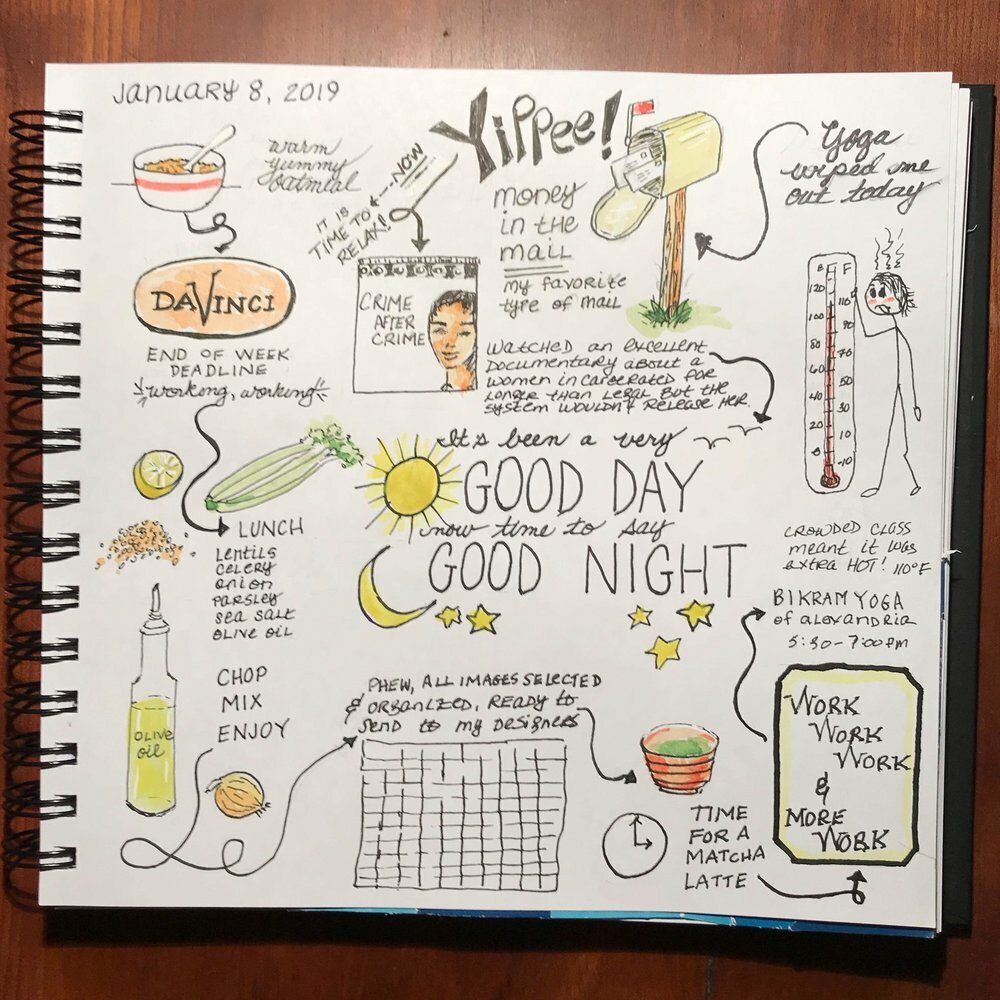 January 8, 2019
warm
yummy
oatmeal
DAVINCI
END OF WEEK
DEADLINE
working, working
LUNCH
Lentils
celery
onion
parsley
sea salt
olive oil
CHOP
MIX
ENJOY
olive
oil
PHEW, ALL IMAGES SELECTED
& organized, ready to
send to my designers
TIME
FOR A
MATCHA
LATTE
WORK
WORK
WORK
&
MORE
WORK
BIKRAM YOGA
of alexandria
5:30-7:00pm
crowded class
meant it was
extra HOT! 110°F
F
120
100
80
60
40
20
0
110
90
70
50
30
10
-10
Yoga
wiped me
out today
Yippee!
money
in the
mail
my favorite
type of mail
NOW
IT IS
TIME TO
RELAX!
CRIME
AFTER
CRIME
watched an excellent
documentary about a
women incarcerated for
longer than legal but the
system wouldn't release her.
It's been a very
GOOD DAY
now time to say
GOOD NIGHT